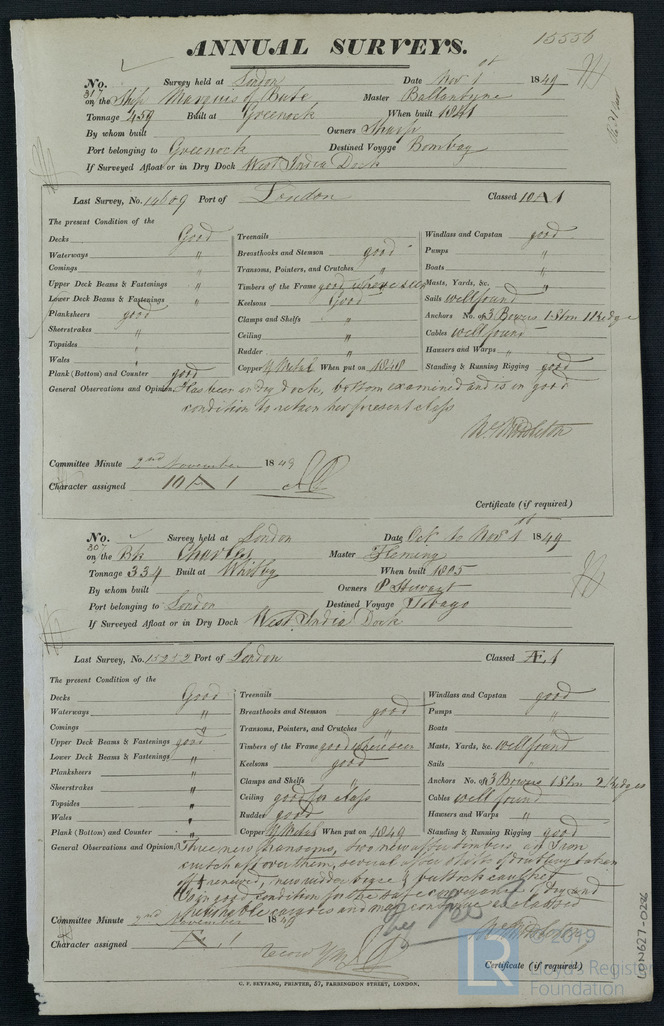 15556
ANNUAL SURVEYS.
No. 317 Survey held at London Date Nov 1st 1849
on the Ship Marquis of Bute Master Ballantyne
Tonnage 459 Built at Greenock When built 1841
By whom built Owners Sharp
Port belonging to Greenock Destined Voyage Bombay
If Surveyed Afloat or in Dry Dock West India Dock
Last Survey, No. 14609 Port of London Classed 10 A 1
The present Condition of the
Decks Good
Waterways "
Comings "
Upper Deck Beams & Fastenings "
Lower Deck Beams & Fastenings "
Planksheers good
Sheerstrakes "
Topsides "
Wales "
Plank (Bottom) and Counter good
Treenails
Breasthooks and Stemson good
Transoms, Pointers, and Crutches "
Timbers of the Frame good where seen
Keelsons Good
Clamps and Shelfs "
Ceiling "
Rudder "
Copper Y Metal When put on 1848
Windlass and Capstan good
Pumps "
Boats "
Masts, Yards, &c. "
Sails well found
Anchors No. of 3 Bowers 1 Strm 1 Kedge
Cables well found
Hawsers and Warps "
Standing & Running Rigging good
General Observations and Opinion, Has been in dry dock, bottom examined and is in good
condition to retain her present class
Committee Minute 2nd November 1849
Character assigned 10 A 1
Certificate (if required)
No. 307 Survey held at London Date Oct 10 Nov 1st 1849
on the Bk Master Fleming
Tonnage 334 Built at Whitby When built 1805
By whom built Owners P Stewart
Port belonging to London Destined Voyage Tobago
If Surveyed Afloat or in Dry Dock West India Dock
Last Survey, No. 15252 Port of London Classed Æ 1
The present Condition of the
Decks Good
Waterways "
Comings "
Upper Deck Beams & Fastenings good
Lower Deck Beams & Fastenings "
Planksheers "
Sheerstrakes "
Topsides "
Wales "
Plank (Bottom) and Counter "
Treenails
Breasthooks and Stemson good
Transoms, Pointers, and Crutches "
Timbers of the Frame good where seen
Keelsons good
Clamps and Shelfs "
Ceiling good for class
Rudder good
Copper Y Metal When put on 1849
Windlass and Capstan good
Pumps "
Boats "
Masts, Yards, &c. well found
Sails "
Anchors No. of 3 Bowers 1 Strm 2 Kedges
Cables well found
Hawsers and Warps "
Standing & Running Rigging good
General Observations and Opinion, Three new transoms, two new after timbers, an Iron
crutch aft over them, several other shifts of doubling taken
off & renewed, new rudder & buttock caulked
Is in good condition for the safe conveyance of dry and
perishable cargoes and may continue as classed
Committee Minute 2nd November 1849
Character assigned Æ 1
record YM
Certificate (if required)
C. F. SEYFANG, PRINTER, 57, FARRINGDON STREET, LONDON.
LON627-0226
LR
© 2019
Lloyd's Register
Foundation